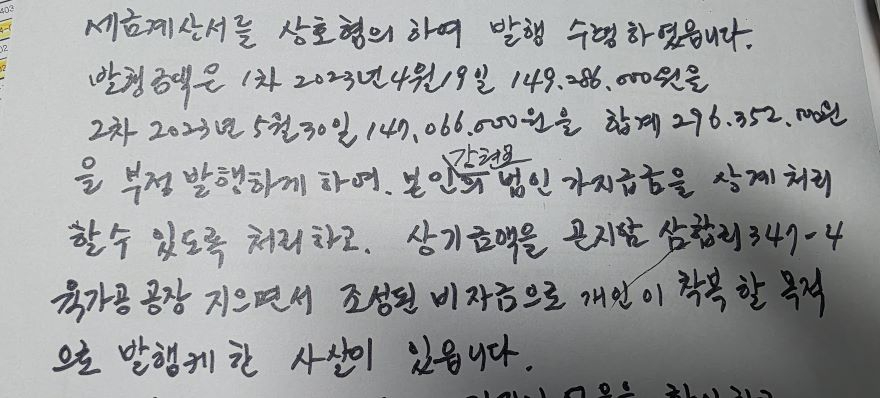 세금계산서를 상호협의 하여 발행 수령하였읍니다.
발행금액은 1차 2023년 4월 19일 149.286.000원을
2차 2023년 5월 30일 147,066.000원을 합계 296.352.000원
을 부정 발행하게 하여. 본인의 법인 가지급금을 상계처리
할수 있도록 처리하고. 상기금액을 곤지암 삼합리 347-4
육가공 공장 지으면서 조성된 비자금으로 개인이 착복 할 목적
으로 발행케 한 사실이 있읍니다.